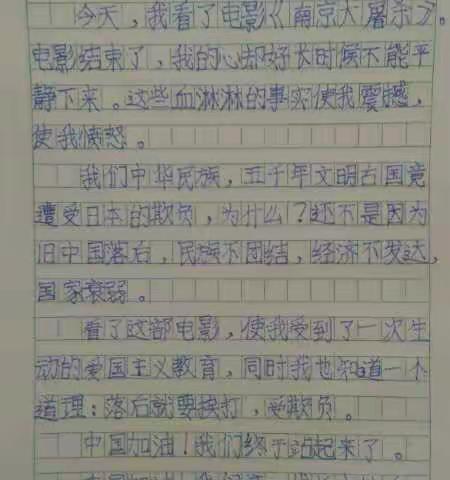 今天，我看了电影《南京大屠杀》。
电影结束了，我的心却好长时候不能平
静下来。这些血淋淋的事实使我震撼，
使我愤怒。
我们中华民族，五千年文明古国竟
遭受日本的欺负，为什么？还不是因为
旧中国落后，民族不团结，经济不发达，
国家衰弱。
看了这部电影，使我受到了一次生
动的爱国主义教育，同时我也知道一个
道理：落后就要挨打，受欺负。
中国加油！我们终于站起来了。